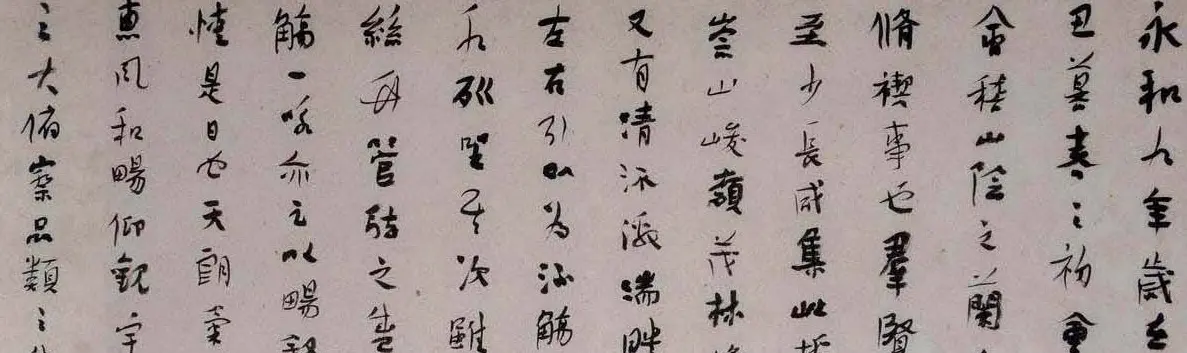 永和九年歲在
丑暮春之初會
會稽山陰之蘭
脩禊事也羣賢
至少長咸集此地
崇山峻嶺茂林
又有清流激湍映
左右引以為流觴
水列坐其次雖
絲竹管弦之盛
觴一詠亦足以暢敘
情是日也天朗氣
惠風和暢仰觀宇
之大俯察品類之盛